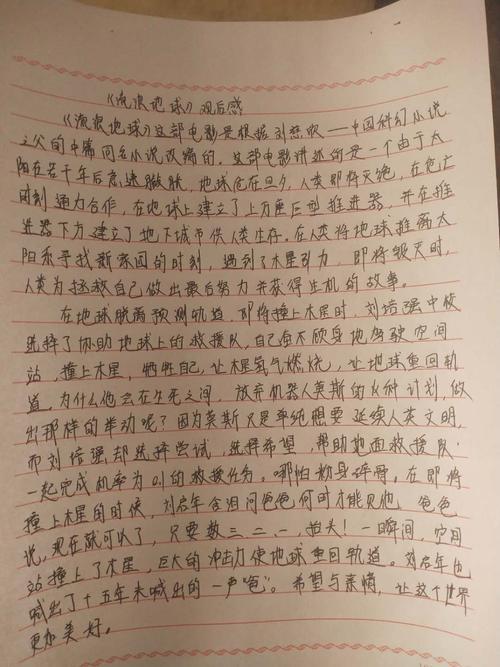 《流浪地球》观后感
《流浪地球》这部电影是根据刘慈欣——中国科幻小说
之父的中篇同名小说改编的。这部电影讲述的是一个由于太
阳在若干年后急速膨胀，地球危在旦夕，人类即将灭绝，在危亡
时刻通力合作，在地球上建立了上万座巨型推进器，并在推
进器下方建立了地下城市供人类生存。在人类将地球推离太
阳系寻找新家园的时刻，遇到了木星引力，即将毁灭时，
人类为拯救自己做出最后努力并获得生机的故事。
在地球脱离预测轨道，即将撞上木星时，刘培强中校
选择了协助地球上的救援队，自己奋不顾身地驾驶空间
站，撞上木星，牺牲自己，让木星氢气燃烧，让地球重回轨
道。为什么他会在生死之间，放弃机器人莫斯的火种计划，做
出那样的举动呢？因为莫斯只是单纯想要延续人类文明，
而刘培强却选择尝试，选择希望，帮助地面救援队
一起完成机率为0的救援任务。哪怕粉身碎骨。在即将
撞上木星的时候，刘启年含泪问爸爸何时才能见他，爸爸
说，现在就可以了，只要数三、二、一，抬头！一瞬间，空间
站撞上了木星，巨大的冲击力使地球重回轨道。刘启年也
喊出了十五年未喊出的一声“爸”。希望与亲情，让这个世界
更加美好。